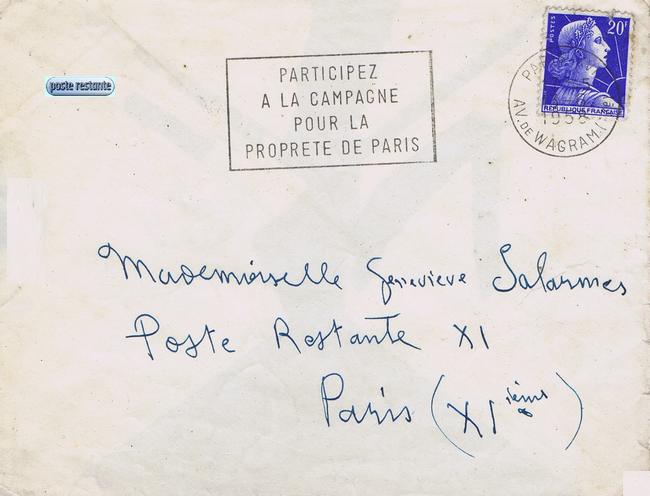 POSTES
20F
REPUBLIQUE FRANÇAISE
PA
1958
AV. DE WAGRAM
poste restante
PARTICIPEZ
A LA CAMPAGNE
POUR LA
PROPRETE DE PARIS
Mademoiselle Geneviève Salarmes
Poste Restante XI
Paris (XI ième)